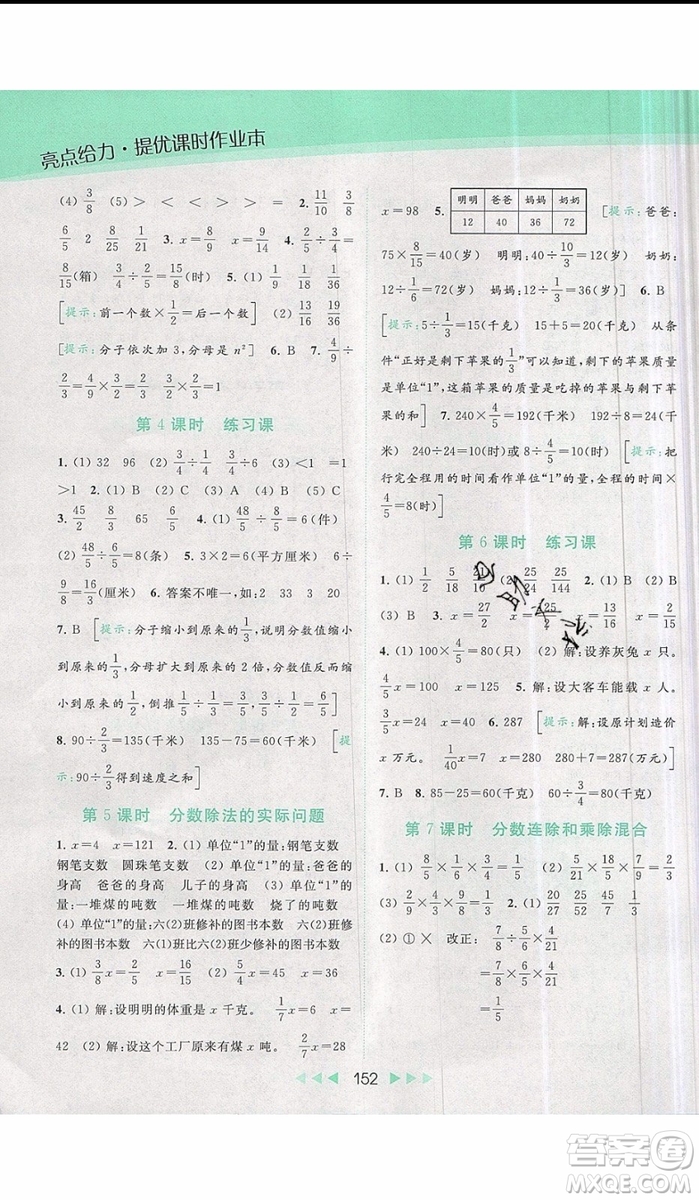 亮点给力·提优课时作业本
(4) 3/8 (5) > < < > = 2. 11/10 6/35
6/5 2 8/25 1/21 3. x=9 x=6 4. 4/5÷3/2=
8/15(箱) 3/4÷2/5=15/8(时) 5. (1) 1/9 1/18 1/36
[提示:前一个数×1/2=后一个数] (2) 13/16 16/25 19/36
[提示:分子依次加 3,分母是 n²] 6. B 7. 4/9÷
2/3=2/3 2/3×3/2=1
第 4 课时 练习课
1. (1) 32 96 (2) 3/4÷1/4=3 (3) ÷ <1 ÷
>1 2. (1) B (2) C (3) A (4) C (5) C
3. 45/2 8/3 65 6/5 4. (1) 5÷5/6=6(件)
(2) 48/5÷6/5=8(条) 5. 3×2=6(平方厘米) 6÷
9/8=16/3(厘米) 6. 答案不唯一,如:2 33 3 20
7. B [提示:分子缩小到原来的1/3,说明分数值缩小
到原来的1/3,分母扩大到原来的 2 倍,分数值反而缩
小到原来的1/2,倒推5/18÷1/3÷1/2=5/3]
8. 90÷2/3=135(千米) 135-75=60(千米) [提
示:90÷2/3得到速度之和]
第 5 课时 分数除法的实际问题
1. x=4 x=121 2. (1) 单位“1”的量:钢笔支数
钢笔支数 圆珠笔支数 (2) 单位“1”的量:爸爸的
身高 爸爸的身高 儿子的身高 (3) 单位“1”的
量:一堆煤的吨数 一堆煤的吨数 烧了的吨数
(4) 单位“1”的量:六(2)班修补的图书本数 六(2)
班修补的图书本数 六(1)班比六(2)班少修补的图书本数
3. (1) 3/8x=2/5 x=16/15 (2) 2/5x=24 x=60
4. (1) 解:设明明的体重是 x 千克。 1/7x=6 x=
42 (2) 解:设这个工厂原有煤 x 吨。 2/7x=28
x=98 5. 明明 爸爸 妈妈 奶奶
12 40 36 72 [提示:爸爸:
75×8/15=40(岁) 明明:40÷10/3=12(岁) 奶奶:
12÷1/6=72(岁) 妈妈:12÷1/3=36(岁)] 6. B
[提示:5÷1/3=15(千克) 15+5=20(千克) 从条
件“正好是剩下苹果的1/3”可以知道,剩下的苹果质量
是单位“1”,这箱苹果的质量是吃掉的苹果和剩下苹
果的和] 7. 240×4/5=192(千米) 192÷8=24(千
米) 240÷24=10(时) 8÷4/5=10(时) [提示:把
行完全程用的时间看作单位“1”,全程的时间×
4/5=8(时)]
第 6 课时 练习课
1. (1) 1/2 5/18 21/10 (2) 25/24 25/144 2. (1) B (2) B
(3) B 3. x=27/2 x=25/2 x=13/16 x=2/15
4. (1) 100×4/5=80(只) (2) 解:设养灰兔 x 只。
4/5x=100 x=125 5. 解:设大客车能载 x 人。
3/5x=24 x=40 6. 287 [提示:解:设原计划造价
x 万元。 1/40x=7 x=280 280+7=287(万元)]
7. B 8. 85-25=60(千克) 60÷2/5=150(千克)
第 7 课时 分数连除和乘除混合
1. (1) 8/5 1/5×1/6×8/5 (2) 1/4 2/3×1/4×4/3
(3) 2/9×9/4×1/3 2. (1) 20/27 27/55 45/32 1/10
(2) ① × 改正: 7/8÷5/6×4/21
=7/8×6/5×4/21
=1/5
152
答案圈
MXQE.COM